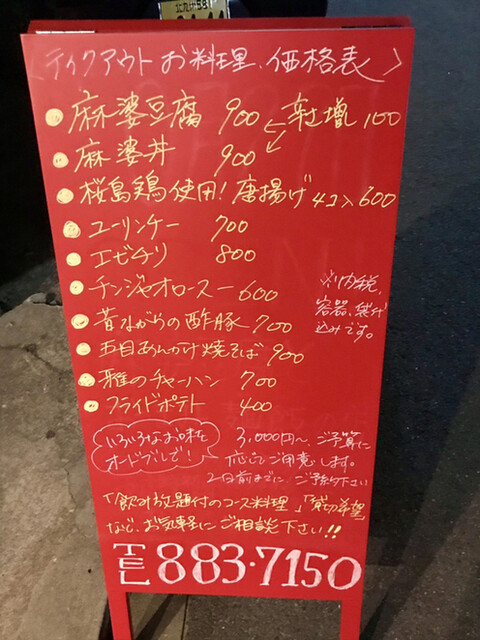 〈テイクアウトお料理、価格表〉
麻婆豆腐 900 ← 辛増し100
麻婆丼 900
桜島鶏使用!唐揚げ4コ入600
ユーリンチー 700
エビチリ 800
チンジャオロースー600
※内税
容器、袋代
込みです。
昔ながらの酢豚700
五目あんかけ焼そば900
雅のチャーハン 700
フライドポテト 400
いろいろなお味を
オードブルで!
3,000円〜、ご予算に
応じてご用意します。
2日前までに、ご予約下さい
「飲み放題付のコース料理」「貸切希望」
など、お気軽にご相談下さい!!
TEL 883・7150